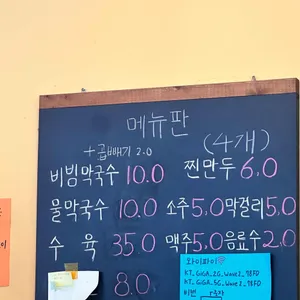 메뉴판
+곱빼기 2.0
(4개)
비빔막국수 10.0 찐만두 6.0
물막국수 10.0 소주 5.0 막걸리 5.0
수육 35.0 맥주 5.0 음료수 2.0
8.0
와이파이